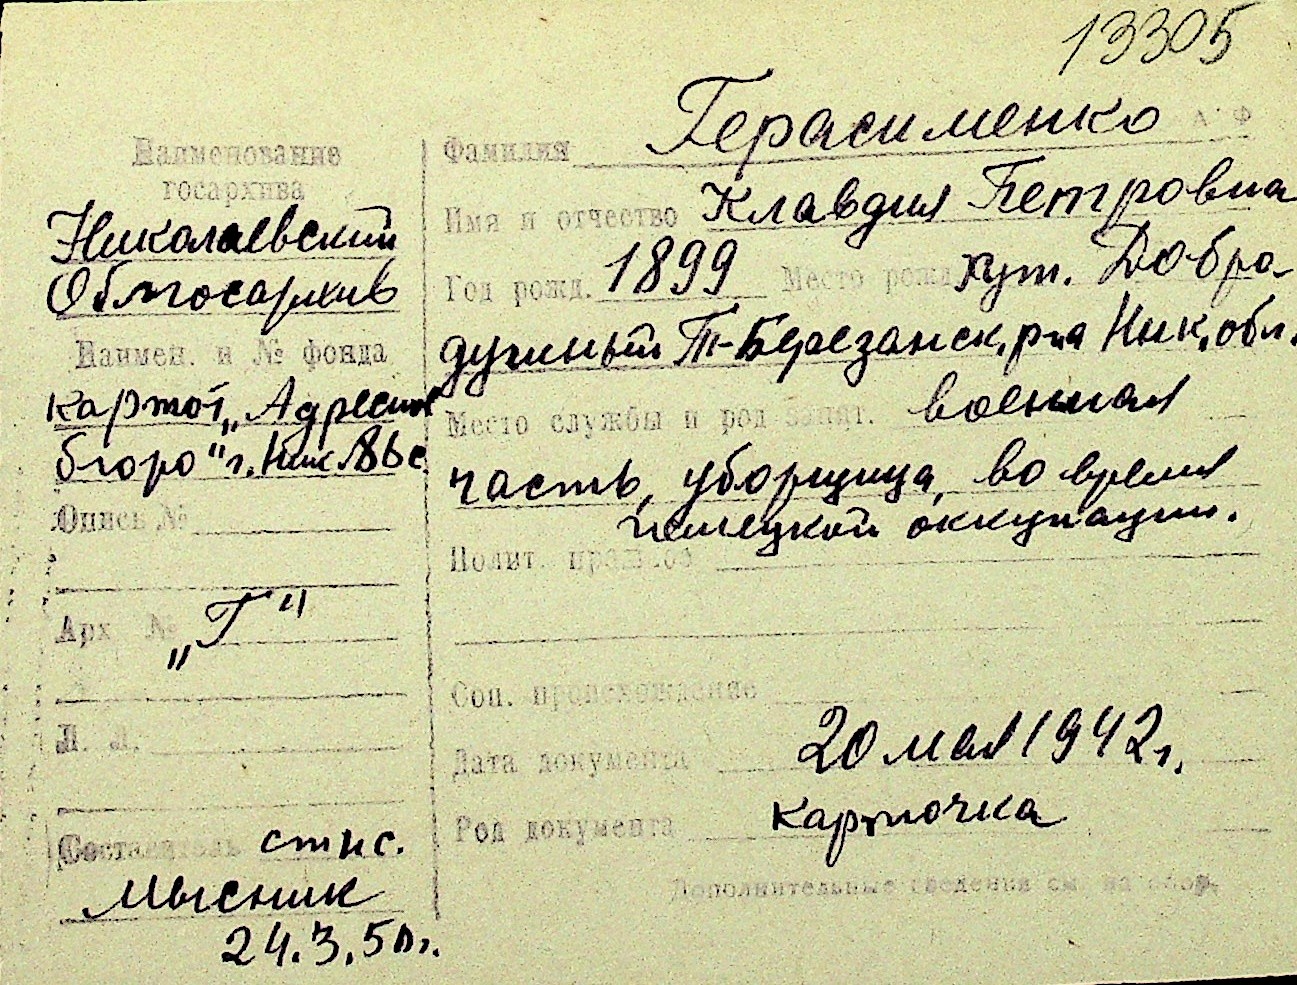 13305
А Ф
Наименование
госархива
Николаевский
Облгосархив
Наимен. и № фонда
картот. „Адресное
бюро" г. Ник
Опись №
Арх. №
„Г"
Л. Л.
Составитель ст.н.с.
Мысник
24.3.50 г.
Фамилия Герасименко
Имя и отчество Клавдия Петровна
Год рожд. 1899 Место рожд. хут. Добра-
душный Т-Березанск. р-на Ник. обл.
Место службы и род занят. военная
часть, уборщица, во время
немецкой оккупации.
Полит.
Соц. происхождение
Дата документа 20 мая 1942 г.
Род документа карточка
Дополнительные сведения см. на обор.